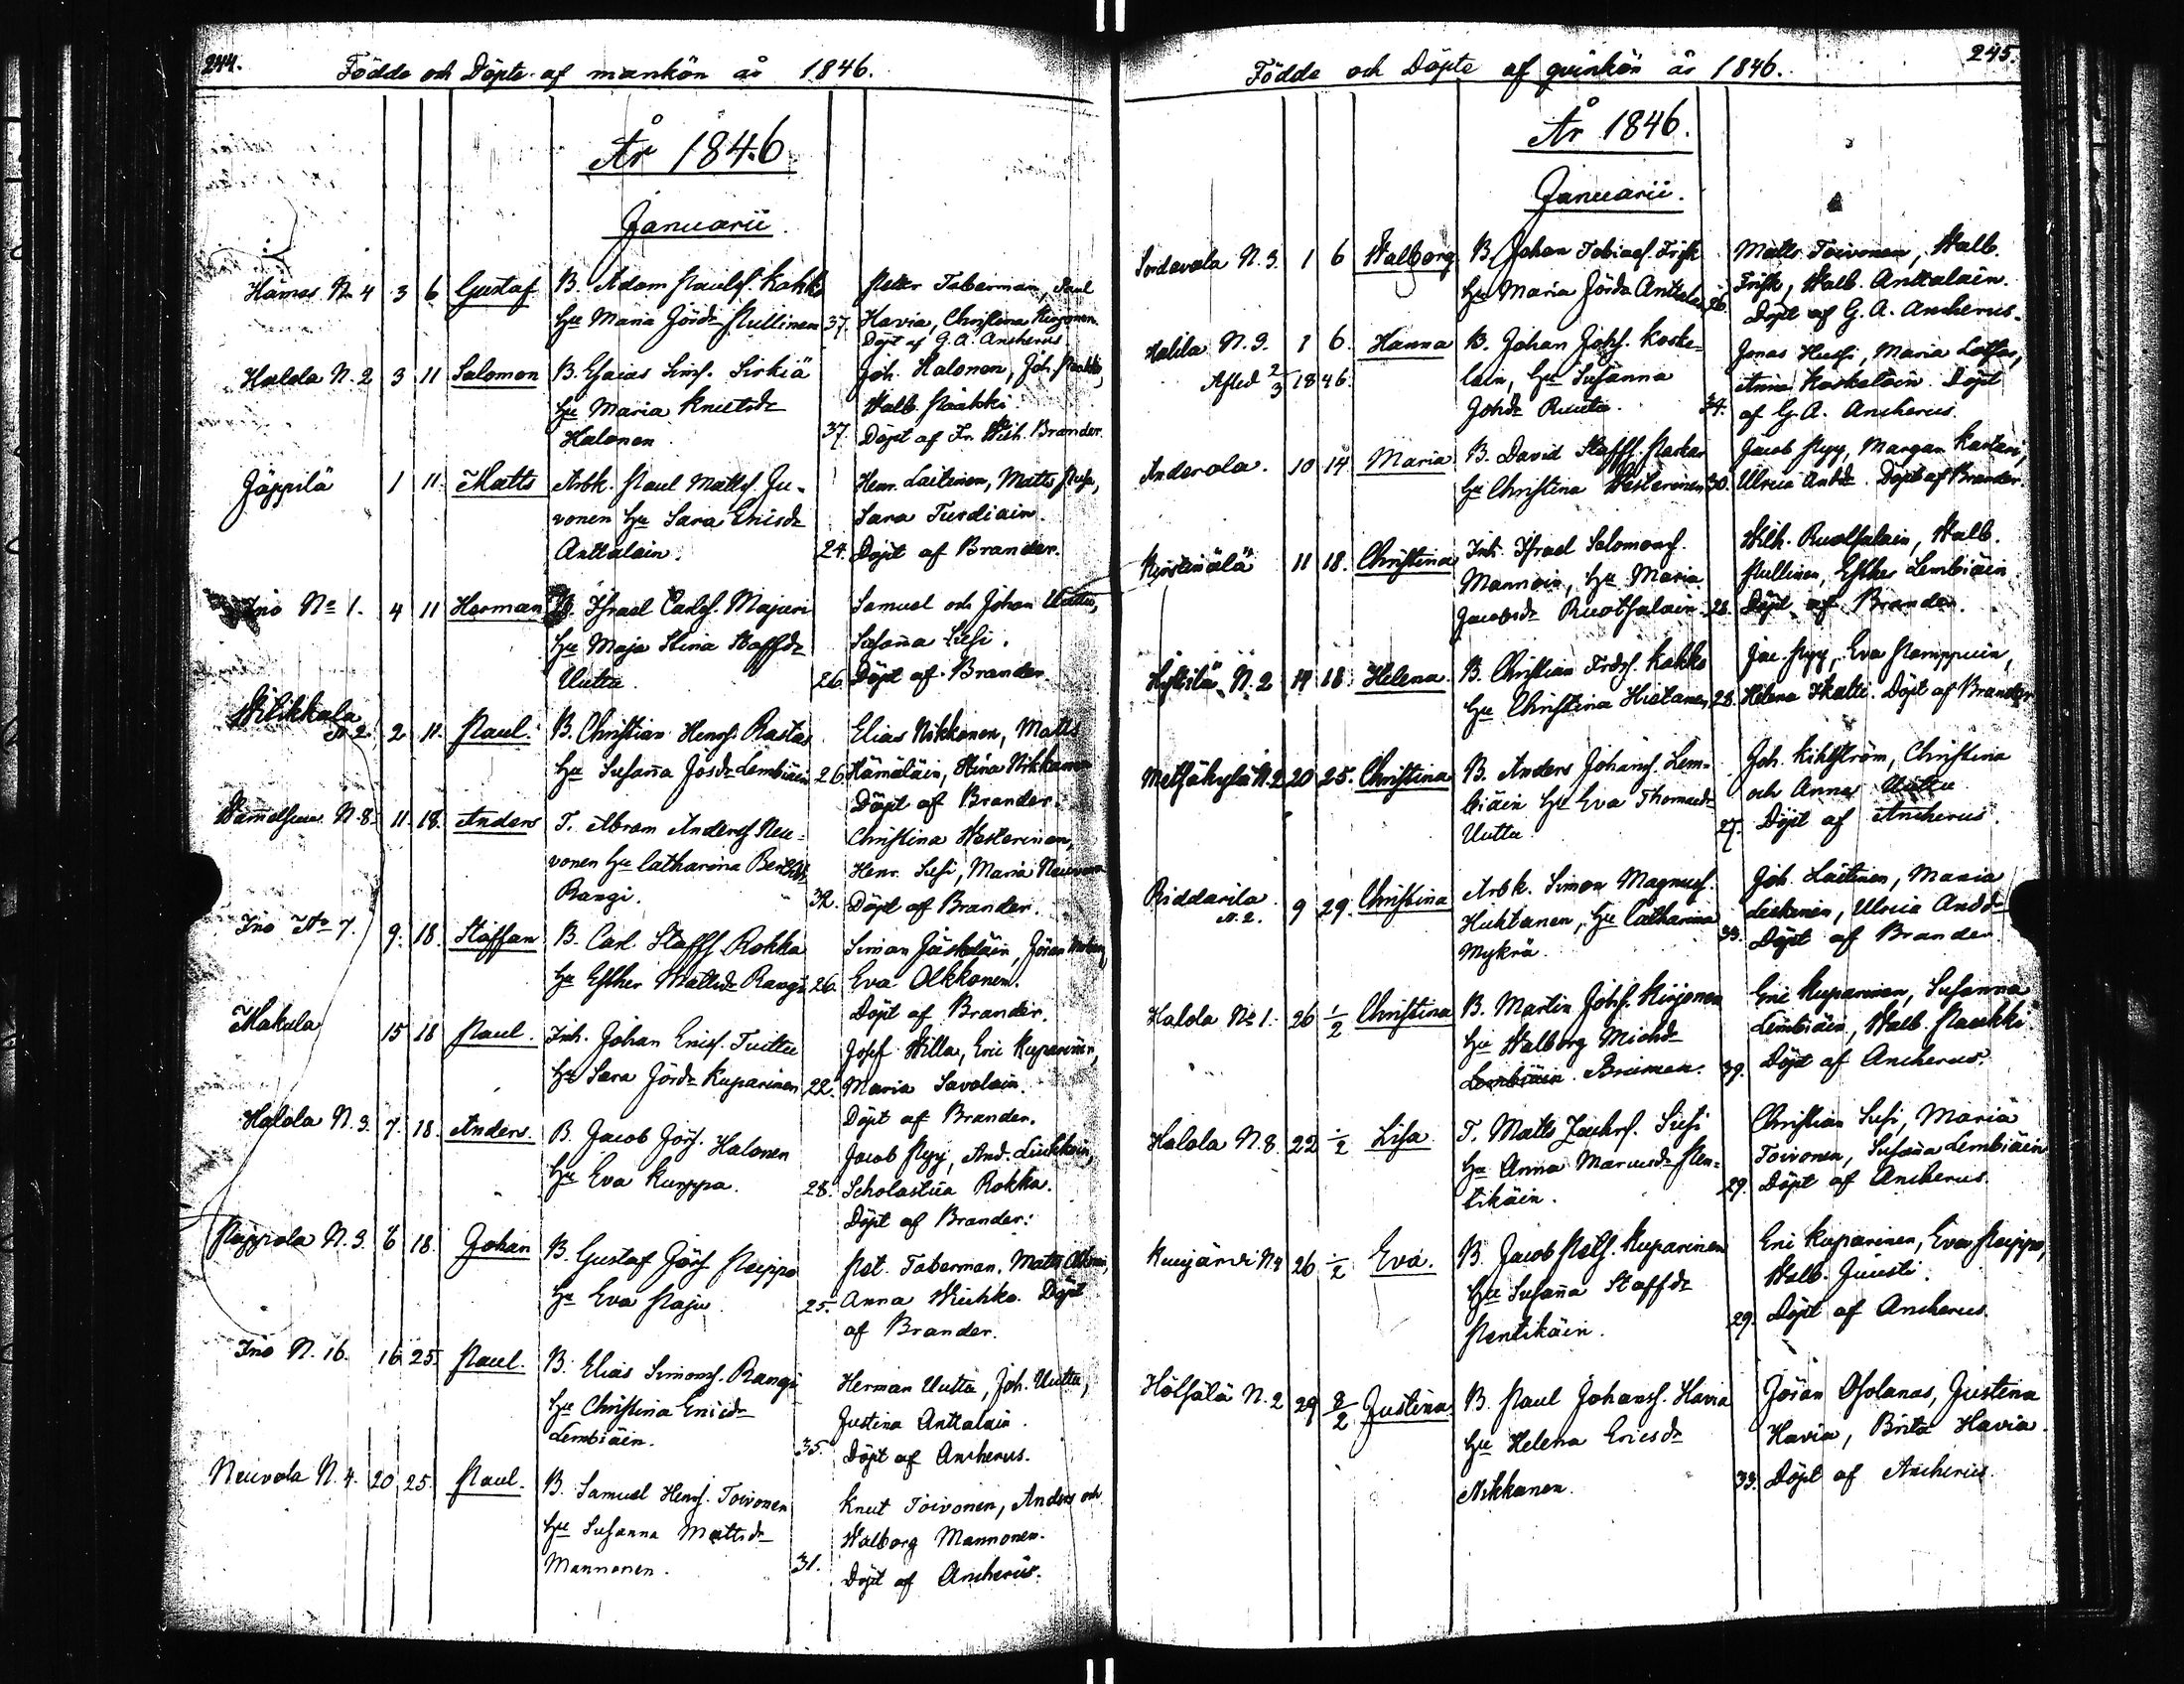 244.
Födde och Döpte af mankön år 1846.
År 1846
Januarii
Hämes N. 4 3 6 Gustaf B. Adam Paulss. Kakko Petter Taberman, Paul
Hu Maria Jörsdr Pullinen 37. Havia, Christina Kirjonen
Döpt af G. A. Ancherus
Halola N. 2 3 11 Salomon B. Esaias Sims. Sirkiä Joh. Halonen, Joh. Paakki,
Hu Maria Knutsdr Walb. Paakki
Halonen 37. Döpt af Fr. Wilh. Brander
Jäppilä 1 11. Matts Arbk. Paul Mattss. Ju- Henr. Laitinen, Matts Pusa,
vonen Hu Sara Ericsdr Sara Turdiain
Anttalain. 24. Döpt af Brander.
Ino No 1. 4 11 Herman B. Israel Carlss. Majuri Samuel och Johan Uuttu,
Hu Maja Stina Staffdr Susanna Susi.
Uuttu. 26. Döpt af Brander
Wilikkala
N. 2. 2 11. Paul. B. Christian Henrs. Rastas Elias Nikkanen, Matts
Hu Susanna Josdr Lembiäin 26 Hämäläin, Stina Nikkanen
Döpt af Brander.
Wammelsuu N. 8. 11. 18. Anders T. Abram Anderss. Neu- Christina Westerinen,
vonen Hu Catharina Henr. Susi, Maria Neuvonen
Rangi. 32. Döpt af Brander.
Ino No 7. 9. 18. Staffan B. Carl Staffs. Rokka Simon Jäskeläin, Jöran
Hu Esther Mattsdr Rangi 26. Eva Olkkonen.
Döpt af Brander.
Makula 15 18 Paul. Inh. Johan Erics. Tuittu Josef Willa, Eric Kuparinen,
Hu Sara Jörsdr Kuparinen 22. Maria Savolain.
Döpt af Brander.
Halola N. 3. 7. 18. Anders. B. Jacob Jörs. Halonen Jacob Pyy, And. Liukkoin,
Hu Eva Kurppa. 28. Scholastica Rokka.
Döpt af Brander.
N. 3. 6 18. Johan B. Gustaf Jörs. Peippo Pet. Taberman, Matts
Hu Eva Paju. 25. Anna Wiuhko. Döpt
af Brander.
Ino N. 16. 16 25. Paul. B. Elias Simonss. Rangi Herman Uuttu, Joh. Uuttu,
Hu Christina Ericsdr Justina Anttalain.
Lembiäin. 35. Döpt af Ancherus.
Neuvola N. 4. 20 25. Paul. B. Samuel Henrs. Toivonen Knut Toivonen, Anders och
Hu Susanna Mattsdr Walborg Mannonen.
Mannonen. 31. Döpt af Ancherus.
245.
Födde och Döpte af qvinkön år 1846.
År 1846.
Januarii.
Sordavala N. 3. 1 6 Walborg B. Johan Tobiass. Frisk Matts Toivonen, Walb.
Hu Maria Jörsdr Anttalain 26. Frisk, Walb. Anttalain.
Döpt af G. A. Ancherus.
Halila N. 3. 1 6. Hanna B. Johan Johss. Koske- Jonas Hussi, Maria
Afled 2/3 1846. lain, Hu Susanna Anna Koskelain. Döpt
Johdr Ruuta. 34. af G. A. Ancherus.
Anderola. 10 14 Maria B. David Staffs. Paskar Jacob Pyy, Margar. Kastari,
Hu Christina Westerinen 30. Ulrica Andsdr. Döpt af Brander.
Kyöstinälä 11 18. Christina Inh. Israel Salomonss. Wilh. Ruotsalain, Walb.
Mannoin, Hu Maria Pullinen, Esther Lembiäin
Jacobsdr Ruotsalain 28. Döpt af Brander.
N. 2 14 18. Helena. B. Christian Frdrs. Kakko Jac. Pyy, Eva Pamppuin,
Hu Christina Hietanen 28. Helena Skatti. Döpt af Brander
Metsäkylä N. 2 20 25. Christina B. Anders Johanss. Lem- Joh. Kihlström, Christina
biäin Hu Eva Thomasdr och Anna Uuttu
Uuttu 27. Döpt af Ancherus.
Riddarila
N. 2. 9 29. Christina Arbk. Simon Magnuss. Joh. Laitinen, Maria
Huhtanen, Hu Catharina Leskinen, Ulrica Andsdr
Mykrä. 33. Döpt af Brander.
Halola No 1. 26 1/2 Christina B. Martin Johss. Kirjonen Eric Kuparinen, Susanna
Hu Walborg Michdr Lembiäin, Walb. Paukki
Lembiäin. Briiman. 39. Döpt af Ancherus.
Halola N. 8. 22 1/2 Lisa. T. Matts Zachrs. Susi Christian Susi, Maria
Hu Anna Marcusdr Pen- Toivonen, Susanna Lembiäin
tikäin. 29. Döpt af Ancherus.
Kuujärvi N. 4 26 1/2 Eva. B. Jacob Pets. Kuparinen Eric Kuparinen, Eva Peippo,
Hu Susanna Staffdr Walb. Juusti.
Pentikäin. 29. Döpt af Ancherus.
Hölsälä N. 2 29 8/2 Justina. B. Paul Johanss. Havia Jöran Osolanas, Justina
Hu Helena Ericsdr Havia, Brita Havia.
Nikkanen. 33. Döpt af Ancherus.